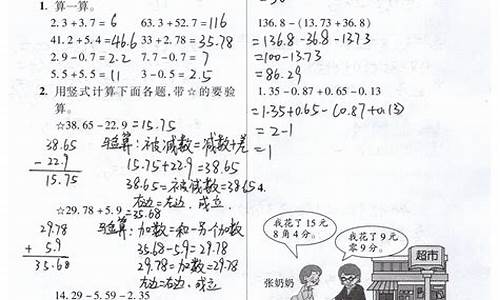 1. 算一算。
2.3+3.7= 6 63.3+52.7= 116
41.2+5.4= 46.6 33+2.78= 35.78
2.9-0.7= 2.2 7.7-0.7= 7
5.5+5.5= 11 3-0.5= 2.5
2. 用竖式计算下面各题,带☆的要验
算。
☆38.65-22.9 =15.75
38.65
- 22.9
15.75
验算:被减数=减数+差
15.75+22.9=38.65
38.65=被减数=38.65
右边=左边,成立.
☆29.78+5.9 =35.68
29.78
+ 5.9
35.68
验算:加数=和-另一个加数
35.68-5.9=29.78
29.78=加数=29.78
右边=左边,成立
14.29-5.59-2.35
136.8-(13.73+36.8)
=136.8-36.8-13.73
=100-13.73
=86.29
1.35-0.87+0.65-0.13
=1.35+0.65-(0.87+0.13)
=2-1
=1
4.
我花了15元
8角4分。
我花了9元
零9分。
超市
张奶奶